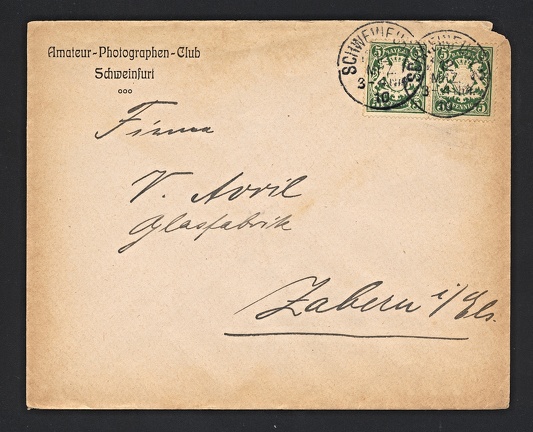 Amateur-Photographen-Club
Schweinfurt
SCHWEINFURT
3-4 NM
10
5 BAYERN 5
5 PFENNIG 5
Firma
V. Avril
Glasfabrik
Zabern i/Els.